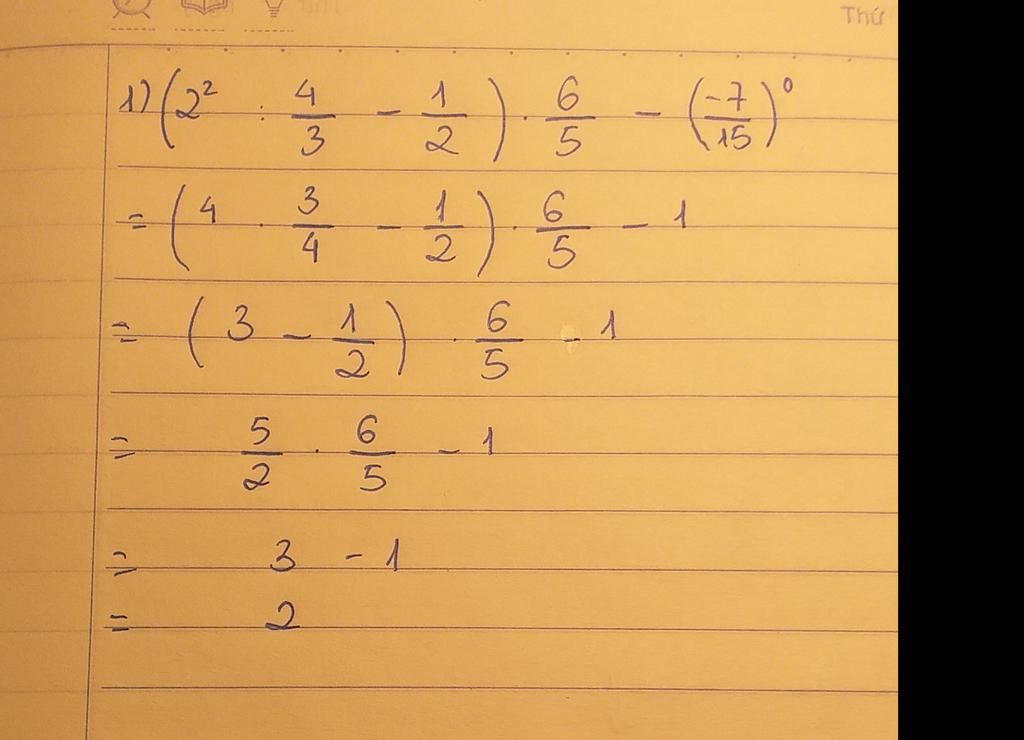 Thứ
1) (2² : 4/3 - 1/2) . 6/5 - (-7/15)⁰
= (4 . 3/4 - 1/2) . 6/5 - 1
= (3 - 1/2) . 6/5 - 1
= 5/2 . 6/5 - 1
= 3 - 1
= 2